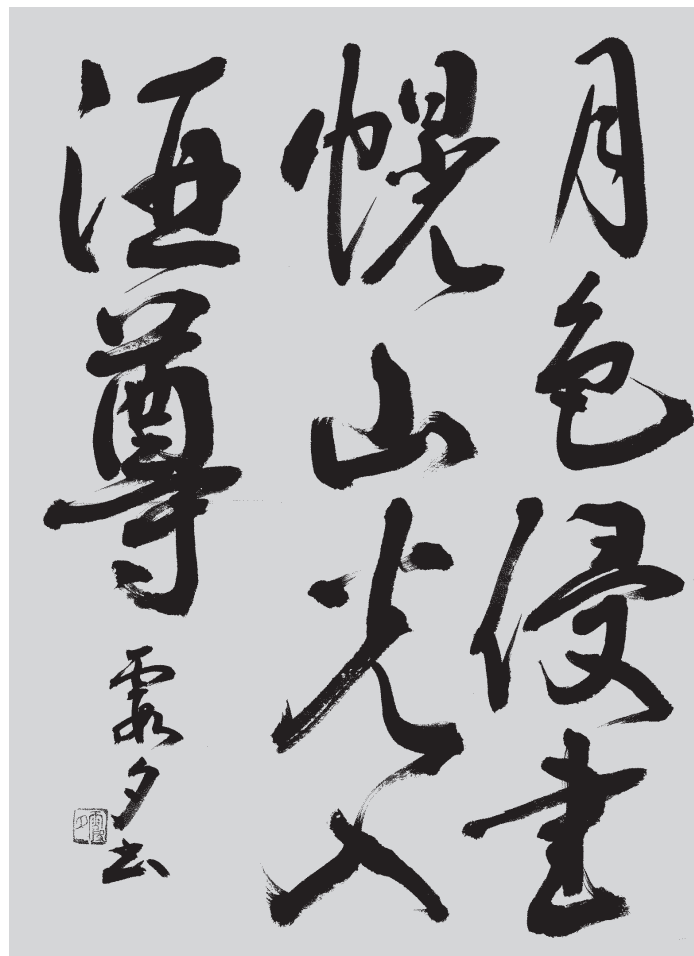 月色侵書
幌山光入
酒尊
霞夕書